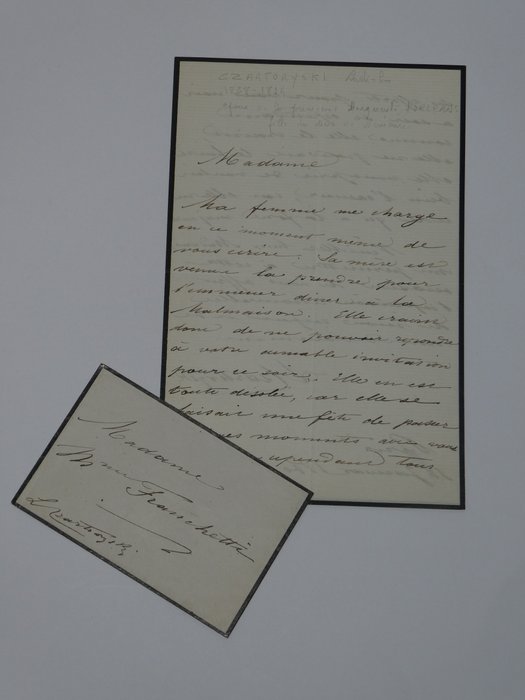 CZARTORYSKI
Madame
Ma femme me charge
en ce moment même de
vous écrire. Sa mère est
venue la prendre pour
l'emmener diner à la
Malmaison. Elle craint
donc de ne pouvoir répondre
à votre aimable invitation
pour ce soir. Elle en est
toute désolée, car elle se
faisait une fête de passer
moments avec vous
cependant tous
Madame
Franchetti